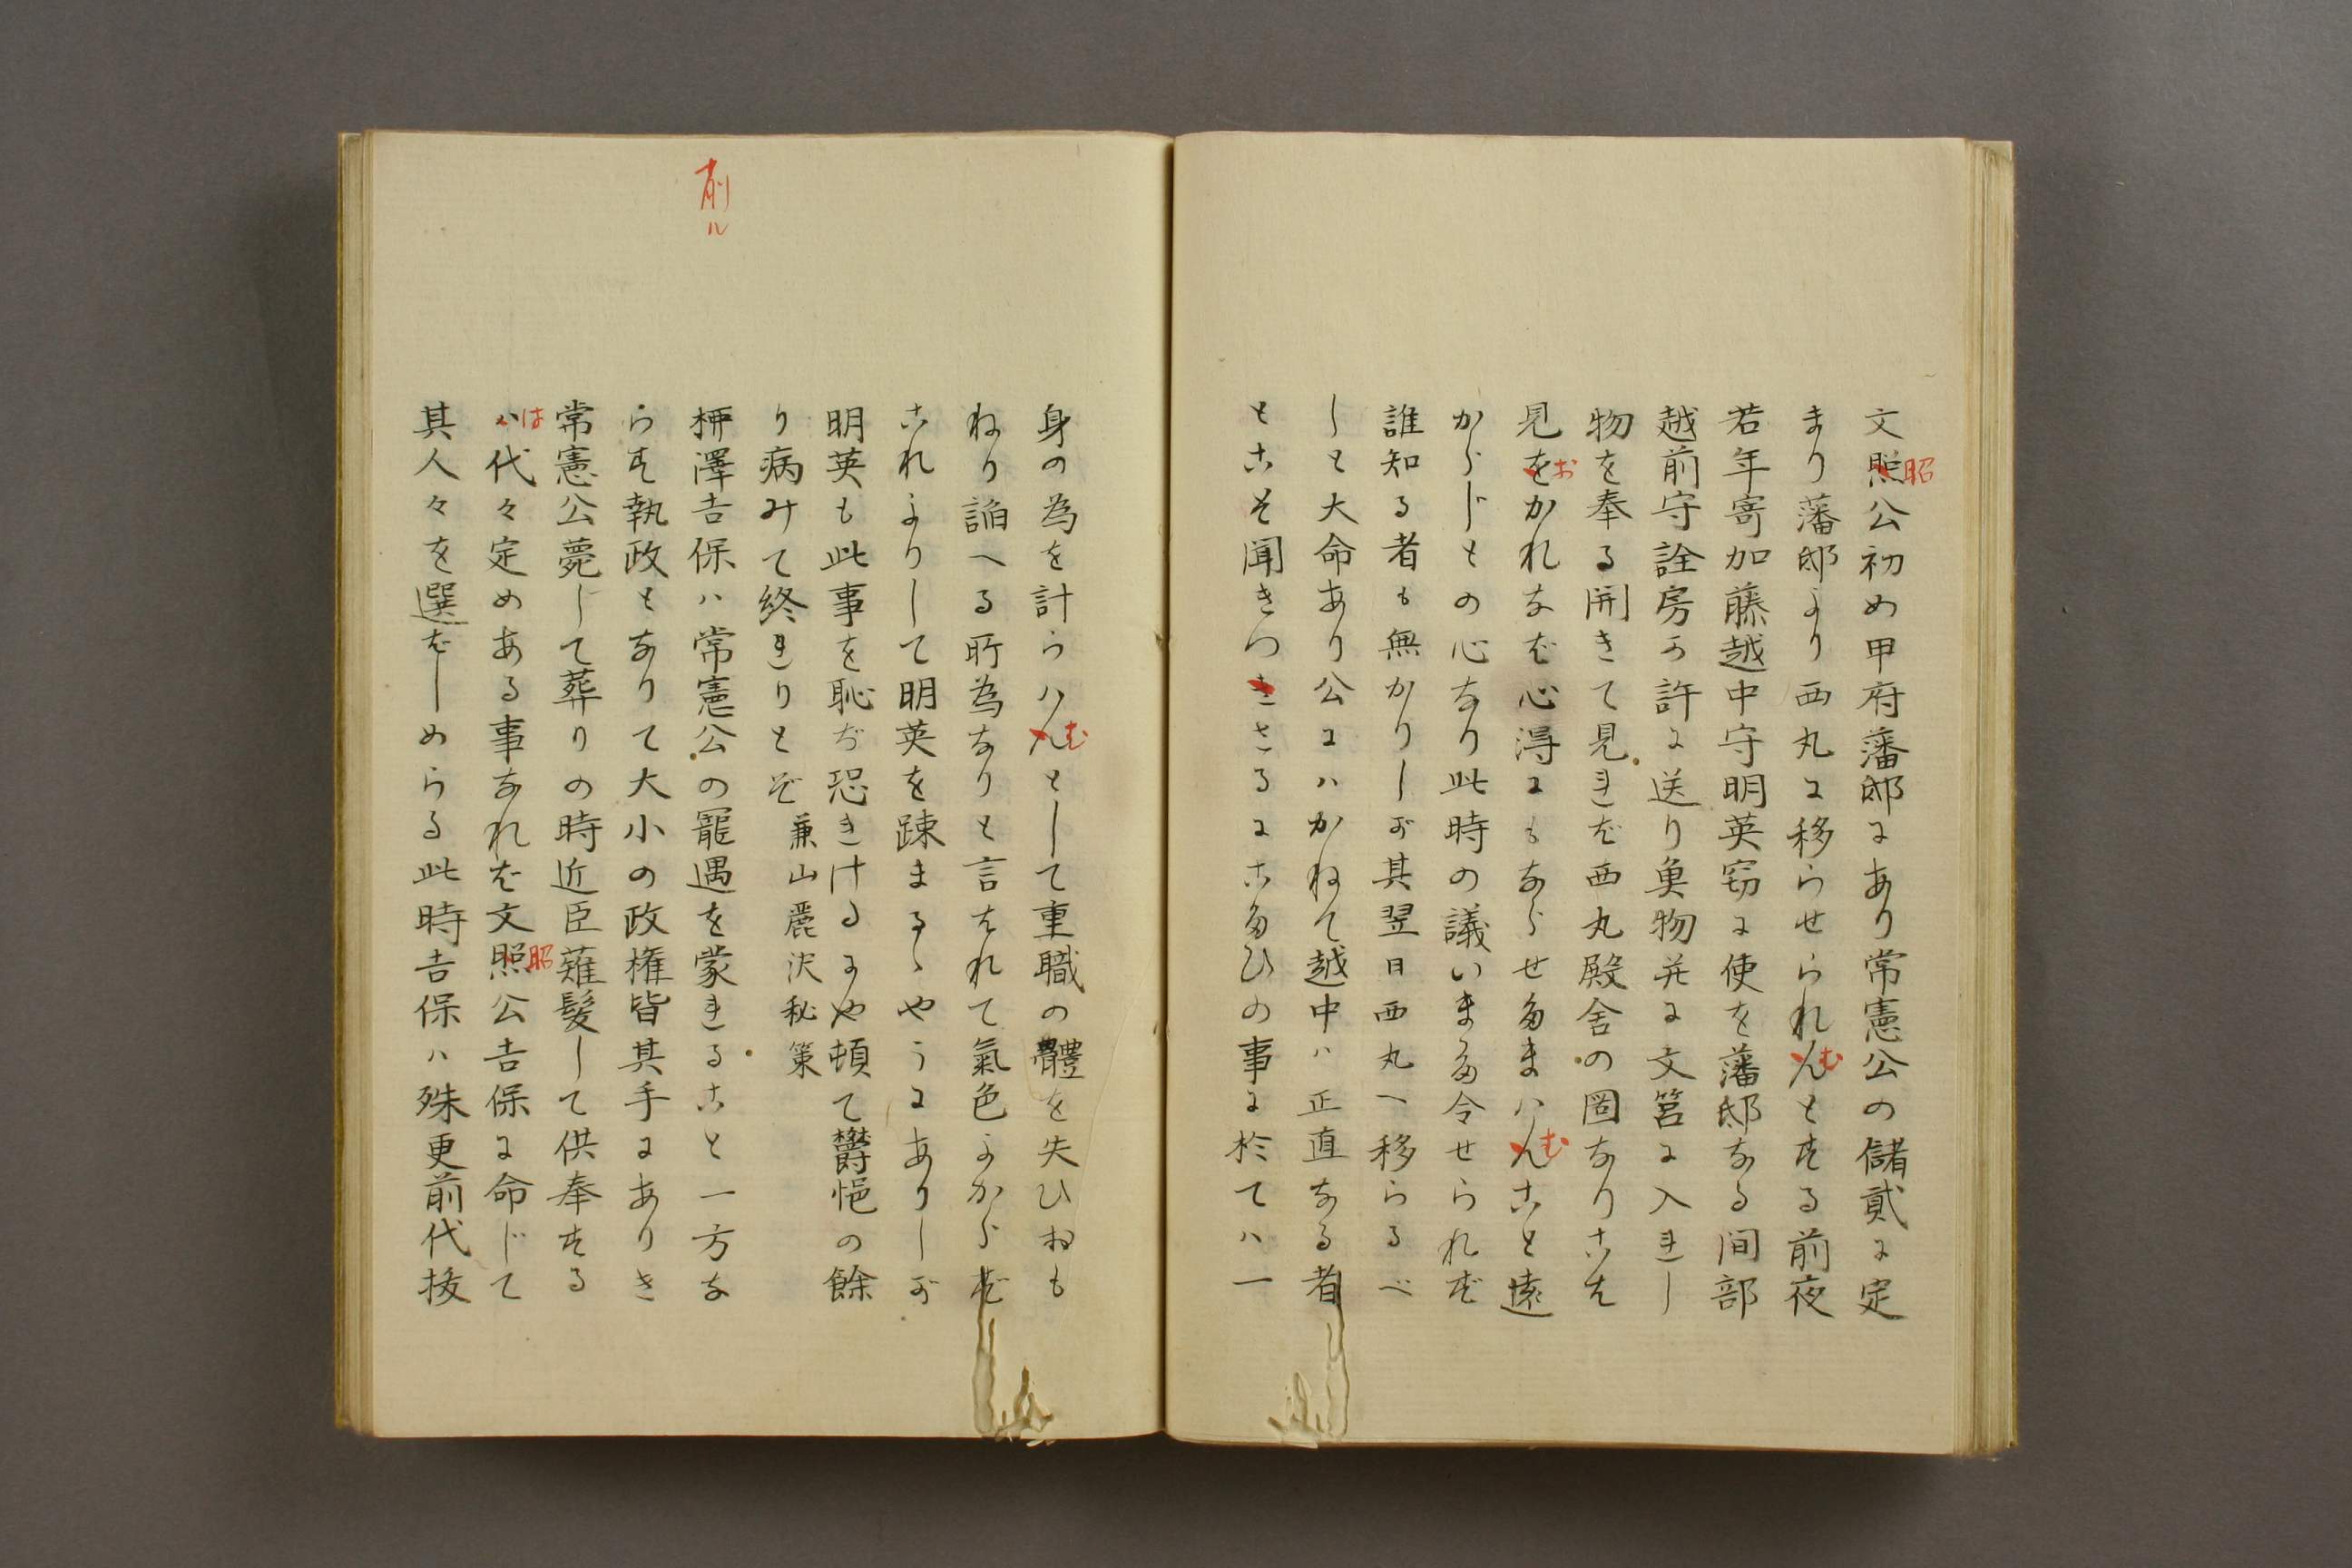 文照公初め甲府藩邸にあり常憲公の儲貳に定
昭
まり藩邸より西丸に移らせられんとする前夜
む
若年寄加藤越中守明英窃に使を藩邸なる間部
越前守詮房の許に送り魚物并に文筥に入れし
物を奉る開きて見れば西丸殿舎の図なりこは
見をかれなば心得にもならせたまハんこと遠
お
む
からじとの心なり此時の議いまだ令せられず
誰知る者も無かりしが其翌日西丸へ移らるべ
しと大命あり公にハかねて越中ハ正直なる者
とこそ聞きつきさるにこたひの事に於てハ一
身の為を計らハんとして重職の體を失ひおも
む
ねり諂へる所為なりと言はれて氣色よからず
これよりして明英を踈まるゝやうにありしが
明英も此事を恥ぢ恐きけるにや頓て欝悒の餘
り病みて終れりとぞ 兼山麗沢秘策
前ル
柳澤吉保ハ常憲公の寵遇を蒙れること一方な
らす執政となりて大小の政権皆其手にありき
常憲公薨じて葬りの時近臣薙髪して供奉する
ハ代々定めある事なれば文照公吉保に命じて
は
昭
其人々を選ばしめらる此時吉保ハ殊更前代抜